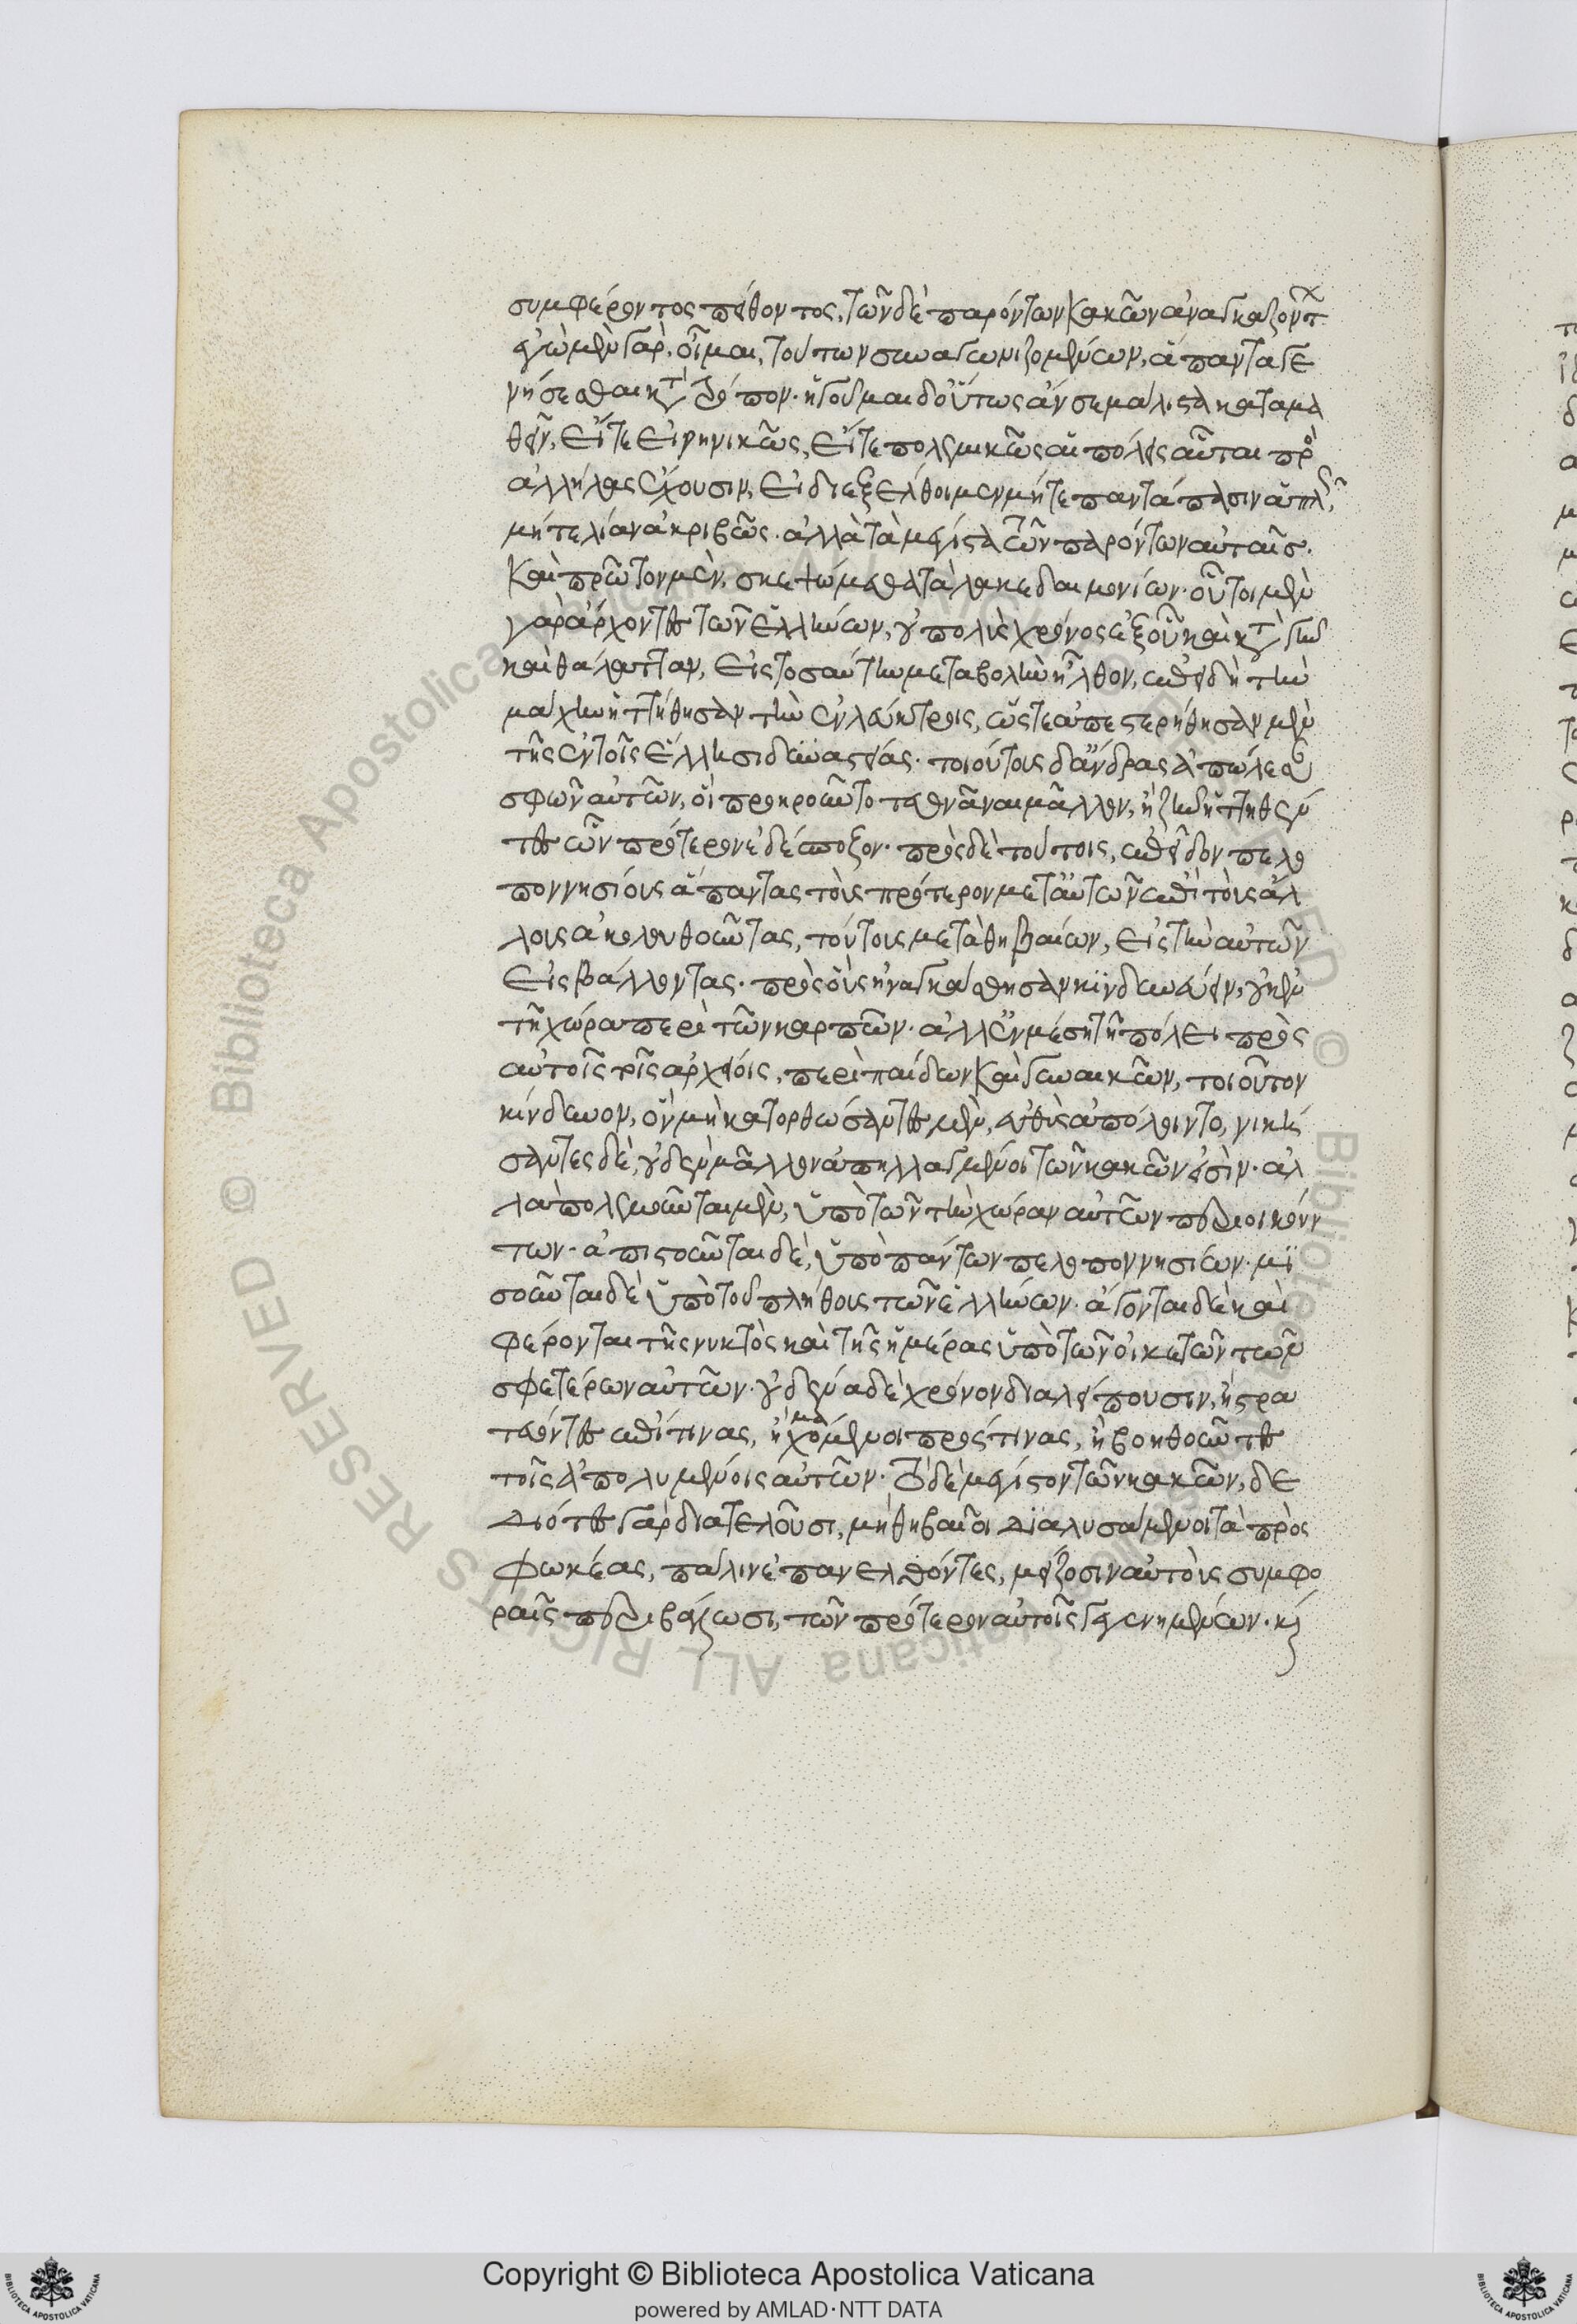 συμφέροντος πείθοντος, τῶν δὲ παρόντων κακῶν ἀναγκαζόντ
ἐγὼ μὲν γὰρ, οἶμαι, τούτων συναγωνιζομένων, ἅπαντα γε
νήσεσθαι κτ τρόπον. ἡγοῦμαι δ' οὕτως ἄν σε μάλιστα καταμα
θεῖν, εἴτε εἰρηνικῶς, εἴτε πολεμικῶς αἱ πόλεις αὗται πρὸ
ἀλλήλας ἔχουσιν, εἰ διεξέλθοιμεν μήτε παντάπασιν ἁπλ
μήτε λίαν ἀκριβῶς. ἀλλὰ τὰ μέγιστα τῶν παρόντων αὐταῖς.
καὶ πρῶτον μὲν, σκεψώμεθα τὰ λακεδαιμονίων. οὗτοι μὲν
γὰρ ἄρχοντες τῶν ἑλλήνων, οὐ πολὺς χρόνος ἐξ οὗ καὶ κτ γῆν
καὶ θάλατταν, εἰς τοσαύτην μεταβολὴν ἦλθον, ἐπειδὴ τὴν
μάχην ἡττήθησαν τὴν ἐν λεύκτροις, ὥστε ἀπεστερήθησαν μὲν
τῆς ἐν τοῖς ἕλλησι δυναστείας. τοιούτους δ' ἄνδρας ἀπώλεσαν
σφῶν αὐτῶν, οἳ προῃροῦντο τεθνάναι μᾶλλον, ἢ ζῆν ἡττηθέν
τες ὧν πρότερον ἐδέσποζον. πρὸς δὲ τούτοις, ἐπεῖδον πελο
ποννησίους ἅπαντας τοὺς πρότερον μετ' αὐτῶν ἐπὶ τοὺς ἄλ
λους ἀκολουθοῦντας, τούτους μετὰ θηβαίων, εἰς τὴν αὐτῶν
εἰσβάλλοντας. πρὸς οὓς ἠναγκάσθησαν κινδυνεύειν, οὐκ ἐν
τῇ χώρᾳ περὶ τῶν καρπῶν. ἀλλ' ἐν μέσῃ τῇ πόλει πρὸς
αὐτοῖς τοῖς ἀρχείοις, περὶ παίδων καὶ γυναικῶν, τοιοῦτον
κίνδυνον, ὃν μὴ κατορθώσαντες μὲν, εὐθὺς ἀπόλοιντο, νική
σαντες δὲ, οὐδὲν μᾶλλον ἀπηλλαγμένοι τῶν κακῶν εἰσὶν. ἀλ
λὰ πολεμοῦνται μὲν, ὑπὸ τῶν τὴν χώραν αὐτῶν περιοικούν
των. ἀπιστοῦνται δὲ, ὑπὸ πάντων πελοποννησίων. μι
σοῦνται δὲ ὑπὸ τοῦ πλήθους τῶν ἑλλήνων. ἄγονται δὲ καὶ
φέρονται τῆς νυκτὸς καὶ τῆς ἡμέρας ὑπὸ τῶν οἰκετῶν τῶν
σφετέρων αὐτῶν. οὐδένα δὲ χρόνον διαλείπουσιν, ἢ στρα
τεύοντες ἐπί τινας, ἢ μαχόμενοι πρός τινας, ἢ βοηθοῦντες
τοῖς ἀπολυμένοις αὐτῶν. τὸ δὲ μέγιστον τῶν κακῶν, δε
διότες γὰρ διατελοῦσι, μὴ θηβαῖοι διαλυσάμενοι τὰ πρὸς
φωκέας, πάλιν ἐπανελθόντες, μείζοσιν αὐτοὺς συμφο
ραῖς περιβάλωσι, τῶν πρότερον αὐτοῖς γεγενημένων. κ